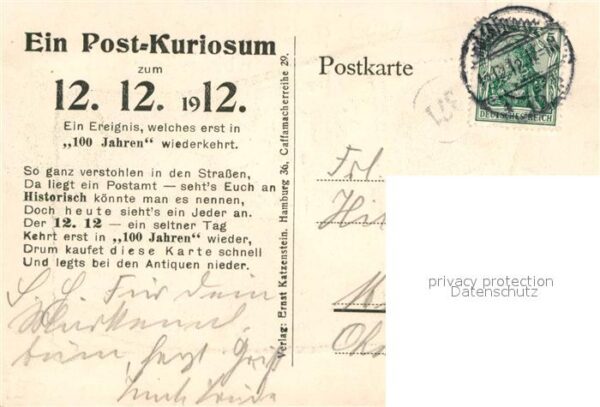 Ein Post-Kuriosum
zum
12. 12. 1912.
Ein Ereignis, welches erst in
„100 Jahren" wiederkehrt.
So ganz verstohlen in den Straßen,
Da liegt ein Postamt — seht's Euch an
Historisch könnte man es nennen,
Doch heute sieht's ein Jeder an.
Der 12. 12 — ein seltner Tag
Kehrt erst in „100 Jahren" wieder,
Drum kaufet diese Karte schnell
Und legts bei den Antiquen nieder.
Für dein
Verlag: Ernst Katzenstein, Hamburg 36, Caffamacherreihe 29.
Postkarte
5
DEUTSCHES REICH
Frl.
privacy protection
Datenschutz